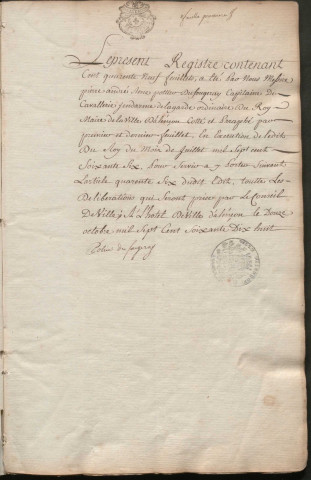 feuille premiere
Le present Registre contenant
Cent quarente Neuf feuillets, a eté par Nous Messire
pierre andré
Cavallerie gendarme de la garde ordinaire Du Roy
Maire de la Ville Cotté et Paraphé par
premier et dernier feuillet, En Execution de l'edit
Du Roy du Mois de Juillet mil Sept cent
Soixante Six, pour Servir a y Porter Suivant
L'article quarente Six dudit Edit, toutes Les
Deliberations qui Seront prises par le Conseil
De Ville, à l'hotel De Ville le Douze
octobre mil Sept Cent Soixante Dix huit